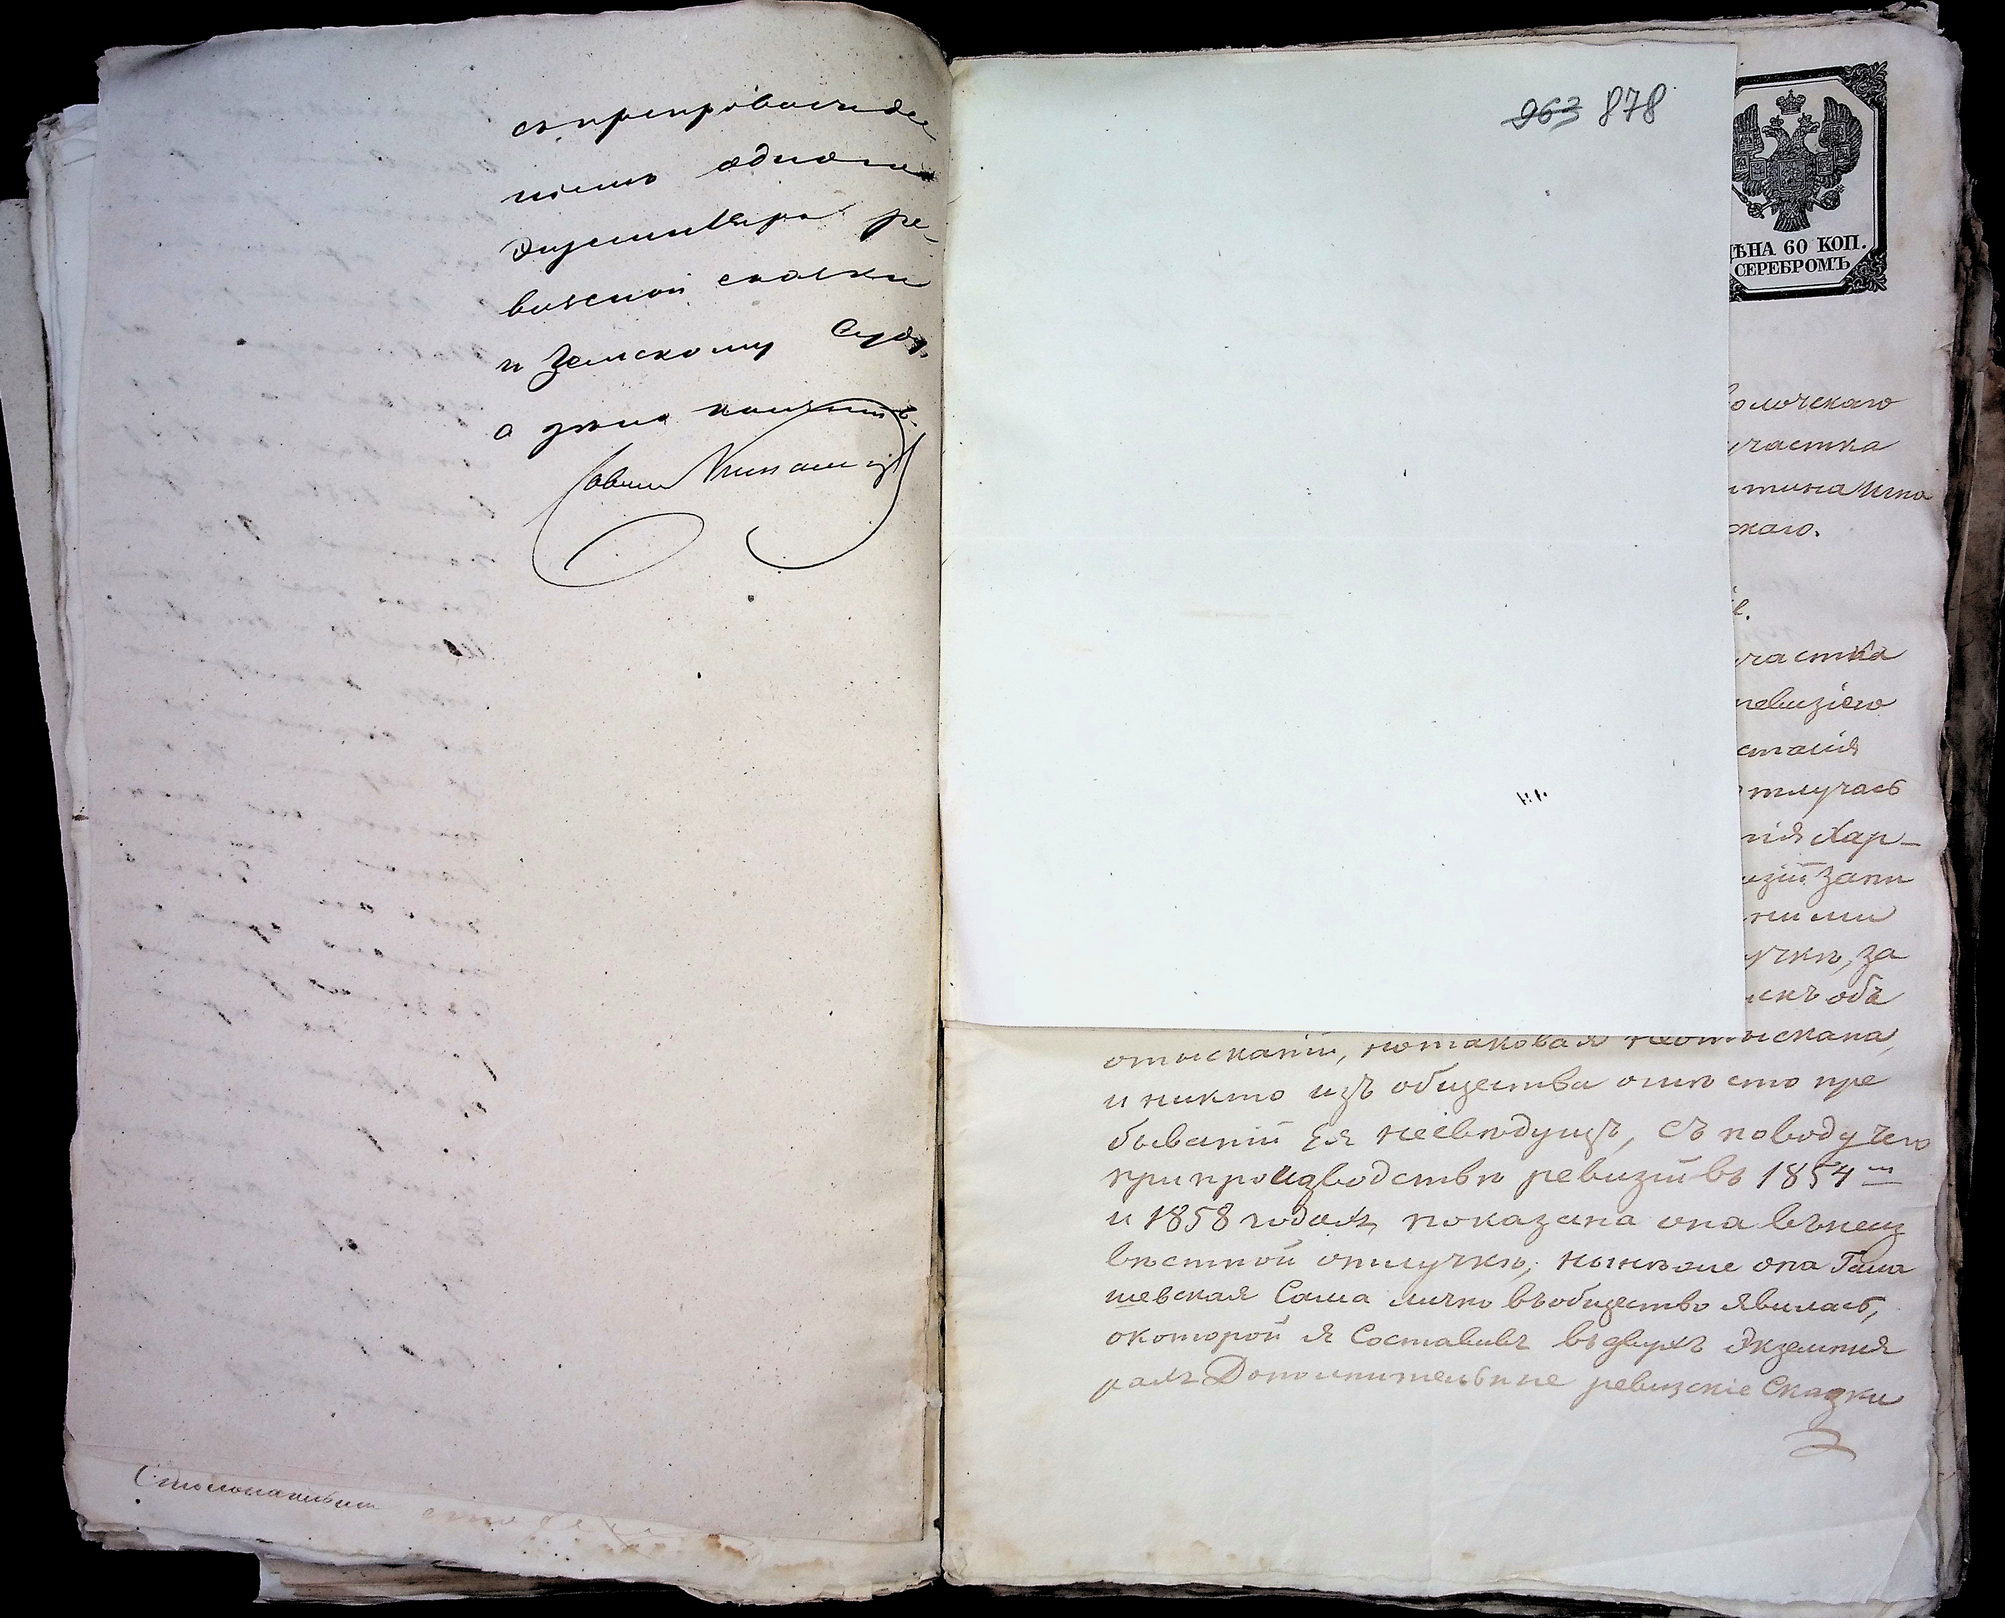 съ препровожде
ніемъ одного
экземпляра ре-
визской сказки
и Земскому Суду,
а дѣло кончить
Столоначальникъ
963 878
ЦѢНА 60 КОП.
СЕРЕБРОМЪ
олочскаго
участка
скаго.
участка
ревизіею
стоянія
отлучась
нія Хар-
изіи запи
ними
учкѣ, за
искъ объ
отысканіи, но таковая неотыскана,
и никто изъ общества о мѣсто пре
бываніи ея несвѣдущъ, съ поводу чего
при производствѣ ревизіи въ 1854 м
и 1858 годахъ, показана она въ неиз
вѣстной отлучкѣ, нынѣже она Гама
шевская Сама лично въ общество явилась,
о которой я Составивъ въ двухъ Экземпля
рахъ Дополнительные ревизскіе Сказки